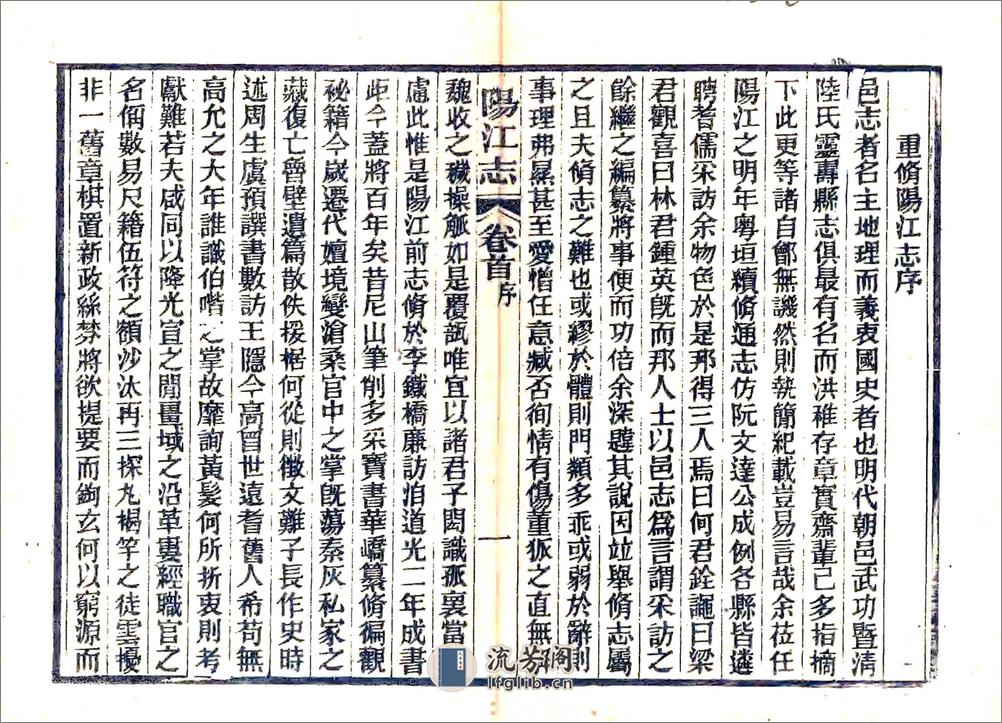 重脩陽江志序
邑志者名主地理而義衷國史者也明代朝邑武功暨淸
陸氏靈壽縣志俱最有名而洪稚存章實齋輩已多指摘
下此更等諸自鄶無譏然則執簡紀載豈易言哉余莅任
陽江之明年粤垣續脩通志仿阮文達公成例各縣皆遴
聘耆儒采訪余物色於是邦得三人焉曰何君銓譝曰梁
君觀喜曰林君鍾英旣而邦人士以邑志爲言謂采訪之
餘繼之編纂將事便而功倍余深韙其說因竝舉脩志屬
之且夫脩志之難也或繆於體則門類多乖或弱於辭則
事理弗㬎甚至愛憎任意臧否徇情有傷董狐之直無
陽江志 卷首 序 一
魏收之穢操觚如是覆瓿唯宜以諸君子閎識孤裏當
慮此惟是陽江前志脩於李鐵橋廉訪洎道光二年成書
距今蓋將百年矣昔尼山筆削多采寶書華嶠纂脩徧觀
祕籍今歲遷代嬗境變滄桑官中之掌旣蕩秦灰私家之
藏復亡魯壁遺篇散佚援据何從則徵文難子長作史時
述周生虞預譔書數訪王隱今高曾世遠耆舊人希苟無
高允之大年誰識伯喈之掌故靡詢黃髮何所折衷則考
獻難若夫咸同以降光宣之閒畺域之沿革婁經職官之
名偭數易尺籍伍符之額沙汰再三探丸揭竿之徒雲擾
非一舊章棋置新政絲棼將欲提要而鉤玄何以窮源而
流芳阁
lfglib.cn